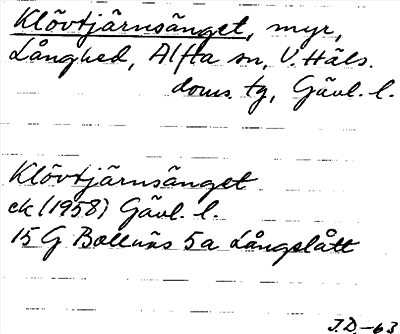 Klövtjärnsänget, myr,
Långhed, Alfta sn, V. Häls.
doms. tg, Gävl. l.
Klövtjärnsänget
ek (1958) Gävl. l.
15 G Bollnäs 5a Långslått
J.D.-63